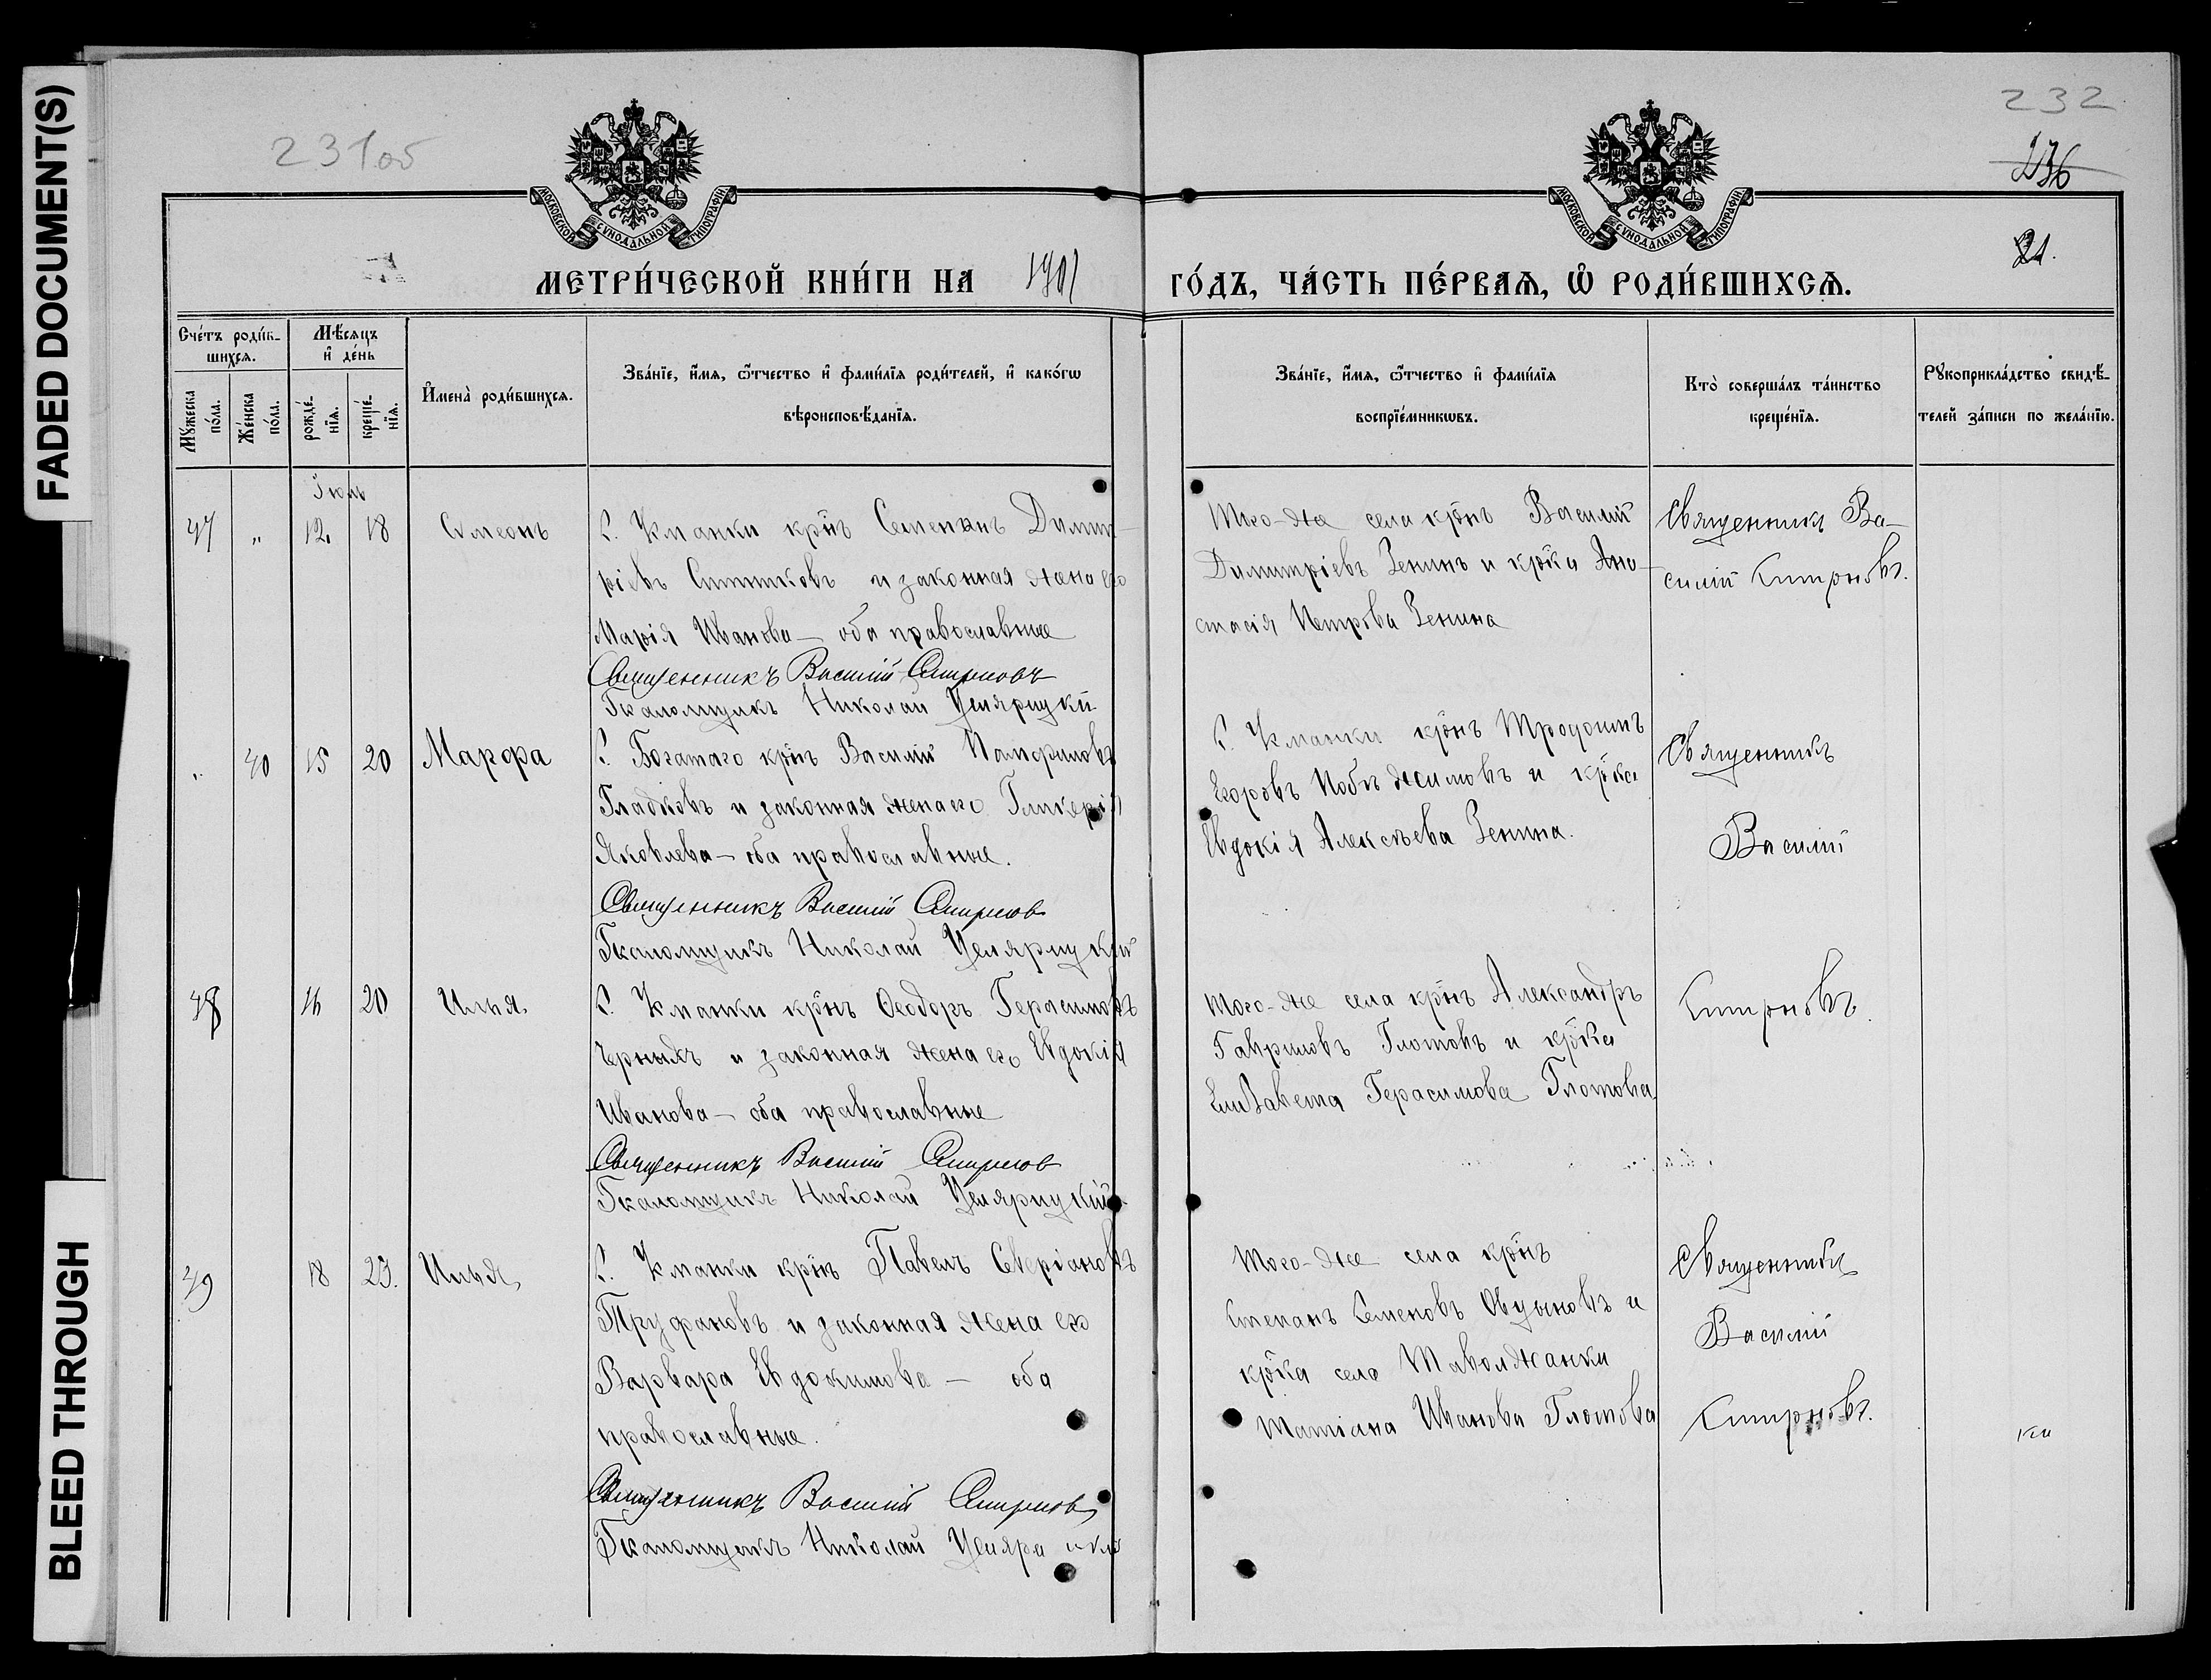 FADED DOCUMENT(S)
BLEED THROUGH
231об
232
236
21.
МОСКОВСКОЙ СУНОДАЛЬНОЙ ТИПОГРАФІИ
МОСКОВСКОЙ СУНОДАЛЬНОЙ ТИПОГРАФІИ
МЕТРИ́ЧЕСКОЙ КНИ́ГИ НА 1901 ГО́ДЪ, ЧА́СТЬ ПЕ́РВАѦ, Ѡ҆ РОДИ́ВШИХСѦ.
Сче́тъ роди́в-
шихсѧ.
Мꙋ́жеска
по́ла.
Же́нска
по́ла.
Мѣ́сѧцъ
и҆ де́нь
рожде́-
нїѧ.
креще́-
нїѧ.
И҆мена̀ роди́вшихсѧ.
Зва́нїе, и҆́мѧ, ѻ҆́тчество и҆ фами́лїѧ роди́телей, и҆ како́гѡ
вѣроисповѣ́данїѧ.
Зва́нїе, и҆́мѧ, ѻ҆́тчество и҆ фами́лїѧ
воспрїе́мникѡвъ.
Кто̀ соверша́лъ та́инство
креще́нїѧ.
Рꙋкоприкла́дство свидѣ́-
телей за́писи по жела́нїю.
Іюль
47 " 12. 18 Сѵмеонъ
С. Уманки крнъ Семенъ Димит-
ріевъ Ситниковъ и законная жена его
Марія Иванова — оба православные
Священникъ Василій Смирновъ
Псаломщикъ Николай
Того-же села крнъ Василій
Димитріевъ Зенинъ и крка Ана-
стасія Петрова Зенина
Священникъ Ва-
силій Смирновъ.
" 40 15 20 Марфа
С. Богатаго крнъ Василій Памфиловъ
Гладковъ и законная жена его Гликерія
Яковлева — оба православные.
Священникъ Василій Смирновъ
Псаломщикъ Николай
С. Уманки крнъ Трофимъ
Егоровъ Побѣжимовъ и крка
Евдокія Алексѣева Зенина.
Священникъ
Василій
Смирновъ.
48 16 20 Илья.
С. Уманки крнъ Ѳеодоръ Герасимовъ
Черныхъ и законная жена его Евдокія
Иванова — оба православные
Священникъ Василій Смирновъ
Псаломщикъ Николай
Того-же села крнъ Александръ
Гавриловъ Глотовъ и крка
Елизавета Герасимова Глотова
49 18 23. Илья,
С. Уманки крнъ Павелъ Северіановъ
Труфановъ и законная жена его
Варвара Евдокимова — оба
православные.
Священникъ Василій Смирновъ
Псаломщикъ Николай
Того-же села крнъ
Степанъ Семеновъ и
крка села Таволжанки
Татіана Иванова Глотова
Священникъ
Василій
Смирновъ.